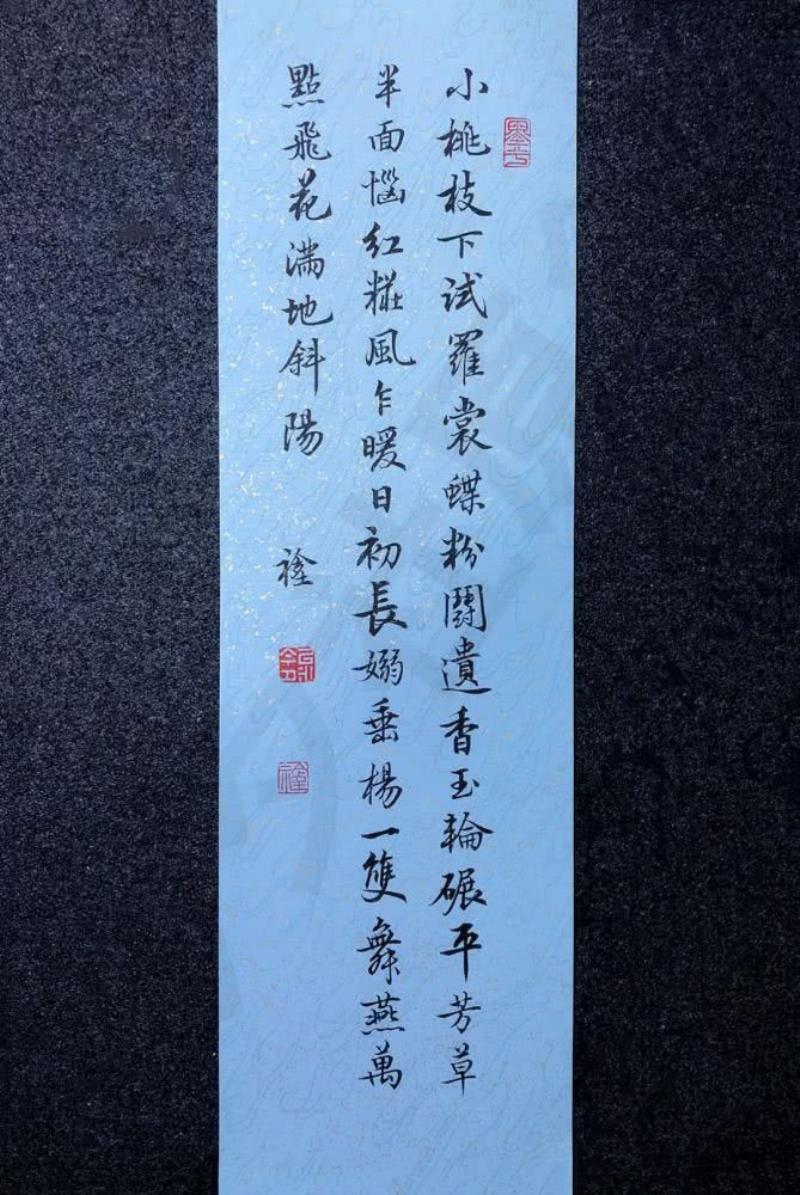 小桃枝下試羅裳蝶粉鬪遺香玉輪碾平芳草
半面惱紅糚風乍暖日初長嫋垂楊一雙舞燕萬
點飛花滿地斜陽